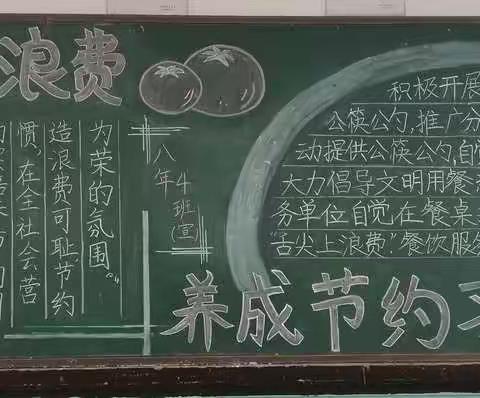 浪费
为荣的氛围。”
造浪费可耻节约
惯,在全社会营
八年4班(宣)
积极开展
公筷公勺,推广分
动提供公筷公勺,自
大力倡导文明用餐
务单位自觉在餐桌
“舌尖上浪费.”餐饮服
养成节约